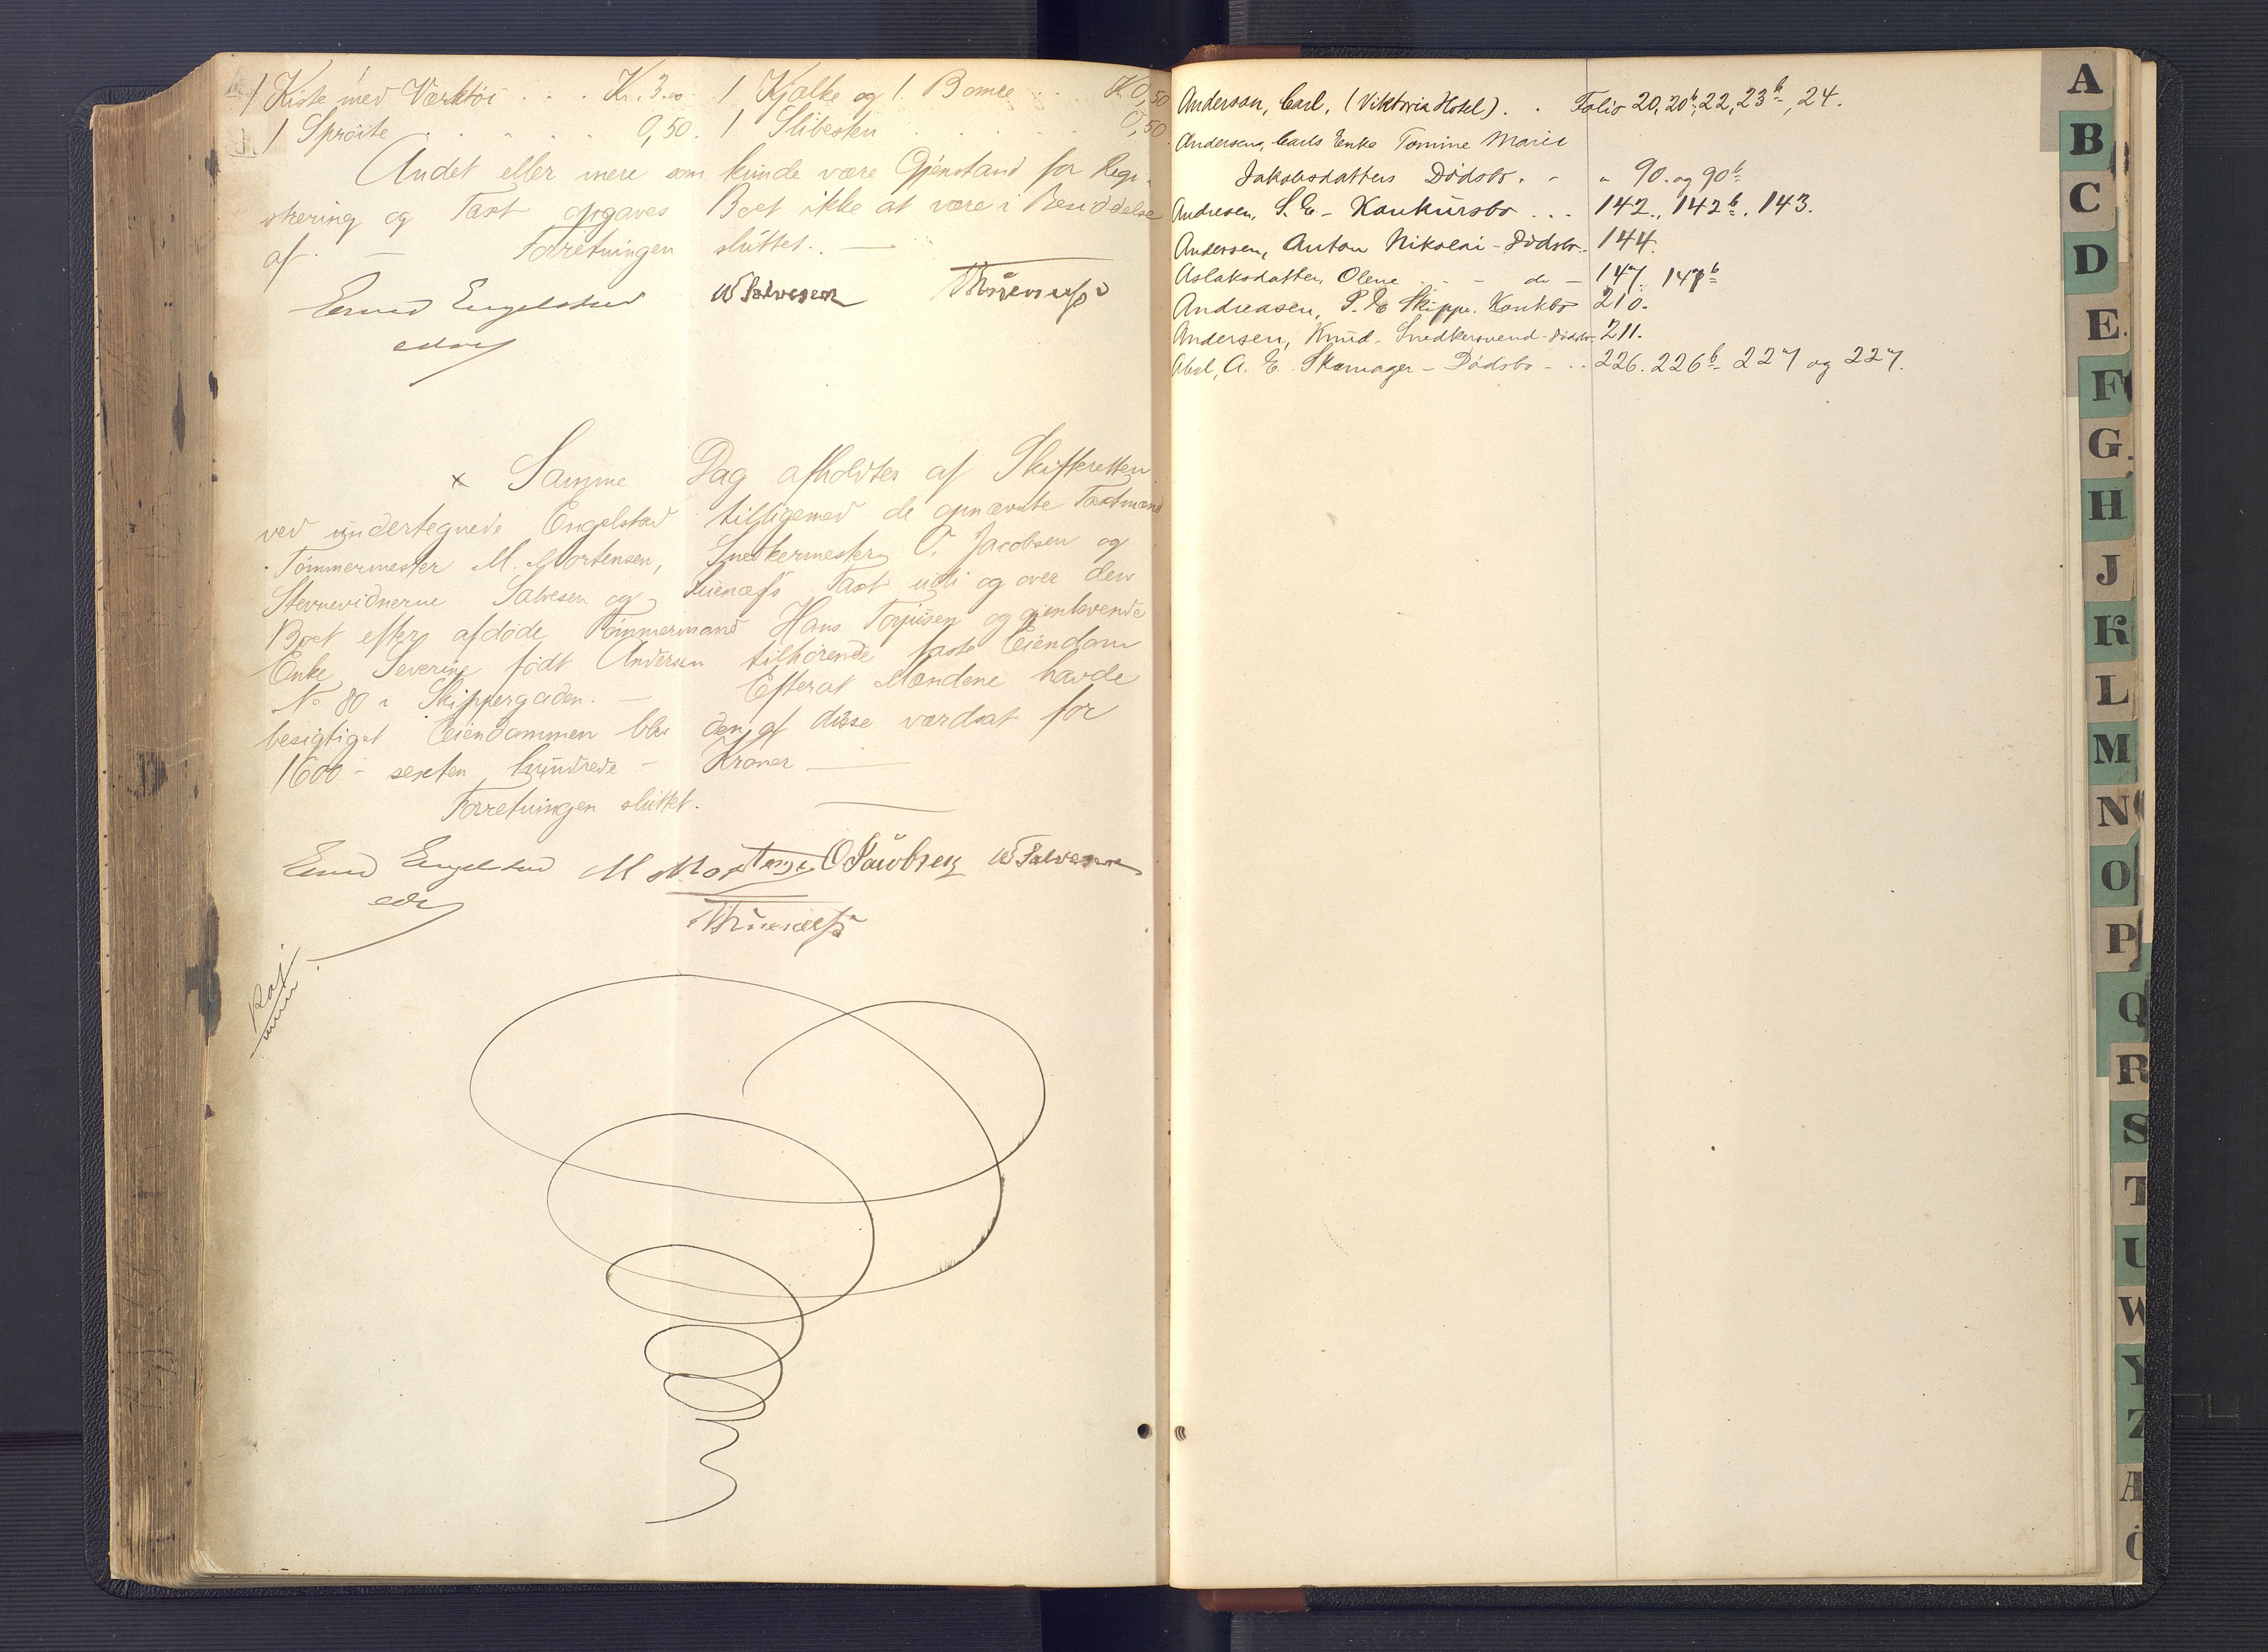 1 Kiste med Værktöi . . . Kr. 3.00 1 Kjælke og 1 Bomce . . Kr 0,50
1 Spröite . . . . . 0,50. 1 Slibesten . . . . 0,50
Andet eller mere som kunde være Gjenstand for Regi-
strering og Taxt opgaves Boet ikke at være i Besiddelse
af. — Forretningen sluttet. —
Engelstad W Salvesen
Samme Dag afholdtes af Skifteretten
ved undertegnede Engelstad tilligemed de opnævnte Taxtmænd
Tömmermester M. Mortensen, Snedkermester O. Jacobsen og
Stevnevidnerne Salvesen og Taxt udi og over den
Boet efter afdöde Tömmermand Hans Torjusen og gjenlevende
Enke Severine födt Andersen tilhörende faste Eiendom
No 80 i Skippergaden. — Efterat Mændene havde
besigtiget Eiendommen blev den af disse værdsat for
1600 - sexten hundrede - Kroner —
Forretningen sluttet. —
Engelstad M Mortensen O Jacobsen W Salvesen
Anderson, Carl, (Viktoria Hotel) . . Folio 20, 20b, 22, 23b, 24.
Andersens, Carls Enke Tomine Marie
Jakobsdatters Dödsbo. - " 90. og 90b
Andresen, S. E - Konkursbo . . . 142., 142b. 143.
Andersen, Anton Nikolai - Dödsbo. 144.
Aslaksdatter, Olene . - - do - 147. 147b
Andreasen, P. E Skippr. Konkbo 210.
Andersen, Knud - Snedkersvend - Dödsbo. 211.
Abel, A. E. Skomager - Dödsbo - . . 226. 226b 227 og 227.
A
B
C
D
E
F
G
H
J
K
L
M
N
O
P
Q
R
S
T
U
W
Y
Z